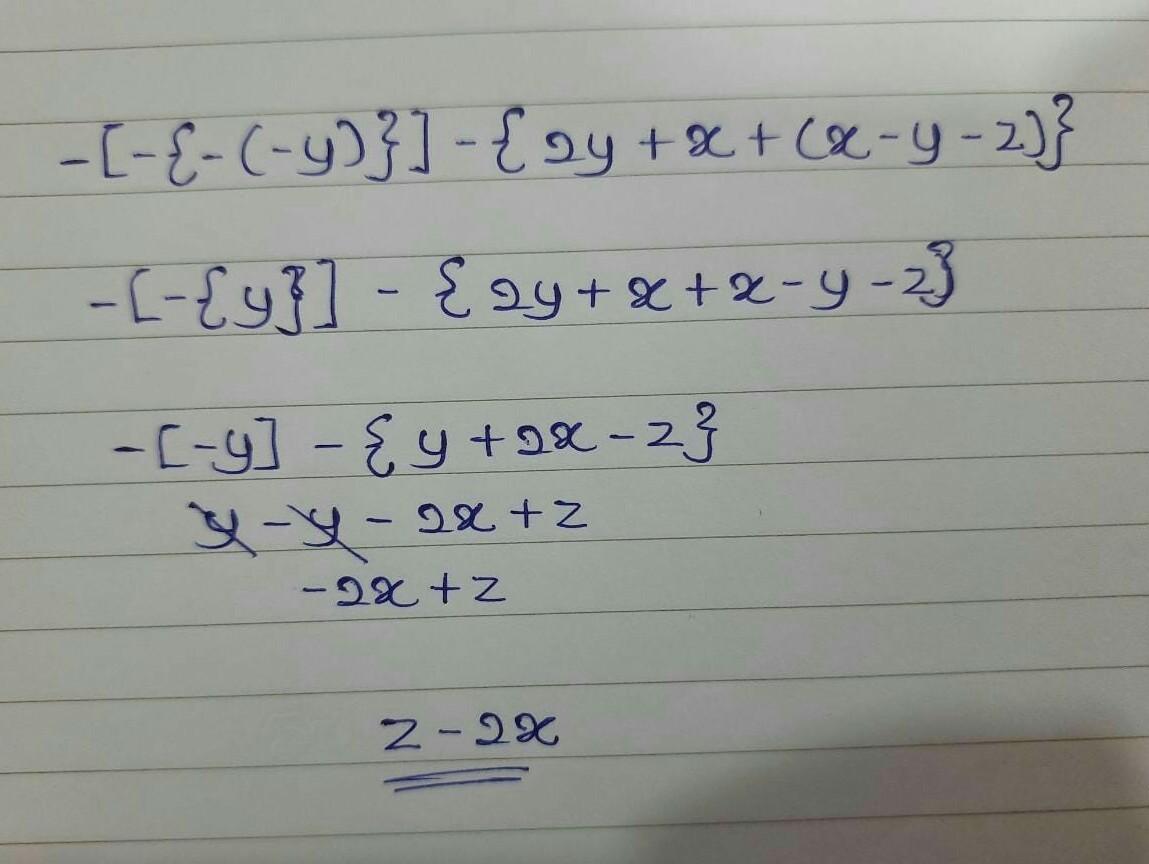 -[-{-(-y)}] - {2y + x + (x - y - z)}
-[-{y}] - {2y + x + x - y - z}
-[-y] - {y + 2x - z}
y - y - 2x + z
-2x + z
z - 2x